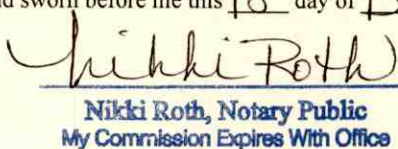 sworn before me this 18 day of
Nikki Roth
Nikki Roth, Notary Public
My Commission Expires With Office